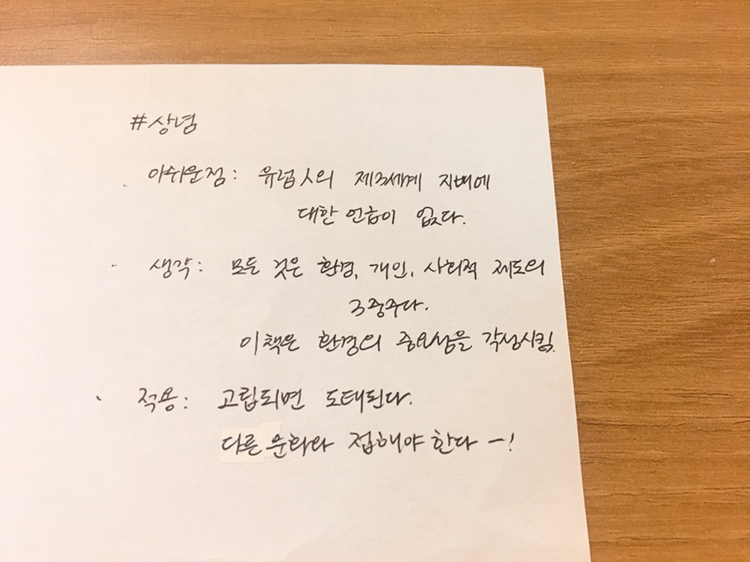 #상념
· 아쉬운점: 유럽인의 제3세계 지배에
대한 언급이 없다.
· 생각: 모든 것은 환경, 개인, 사회적 제도의
3중주다.
이책은 환경의 중요성을 각성시킴.
· 적용: 고립되면 도태된다.
다른 문화와 접해야 한다 -!